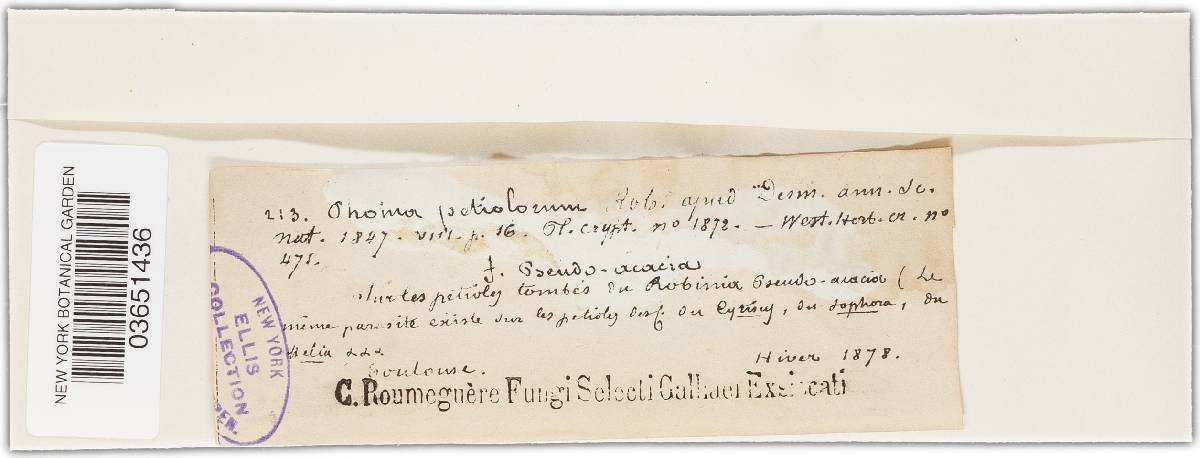 NEW YORK BOTANICAL GARDEN
03651436
NEW YORK
ELLIS
COLLECTION
213. Phoma petiolorum Rob. apud Desm. ann. Sc.
nat. 1847. VIII. p. 16. Pl. crypt. no 1872. — West. Herb. cr. no
471.
f. Pseudo-acacia
Sur les pétioles tombés du Robinia Pseudo-acacia (Le
même parasite existe sur les petioles des du Cytisus, du Sophora, du
Melia &&&
Toulouse. Hiver 1878.
C. Roumeguère Fungi Selecti Galliaei Exsiccati